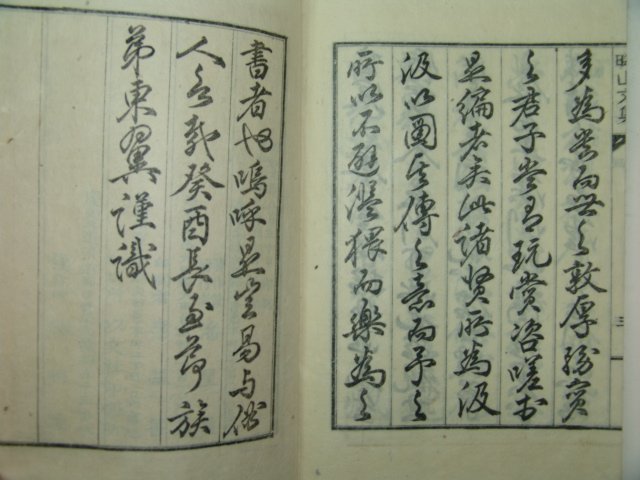 山文集
三
多為貴而世之敦厚務實
之君子當有玩賞咨嗟於
是編者矣此諸賢所為汲
汲以圖其傳之意而予之
所以不避濫猥而樂為之
書者也嗚呼是豈易与俗
人言哉癸酉長至節族
弟東翼謹識